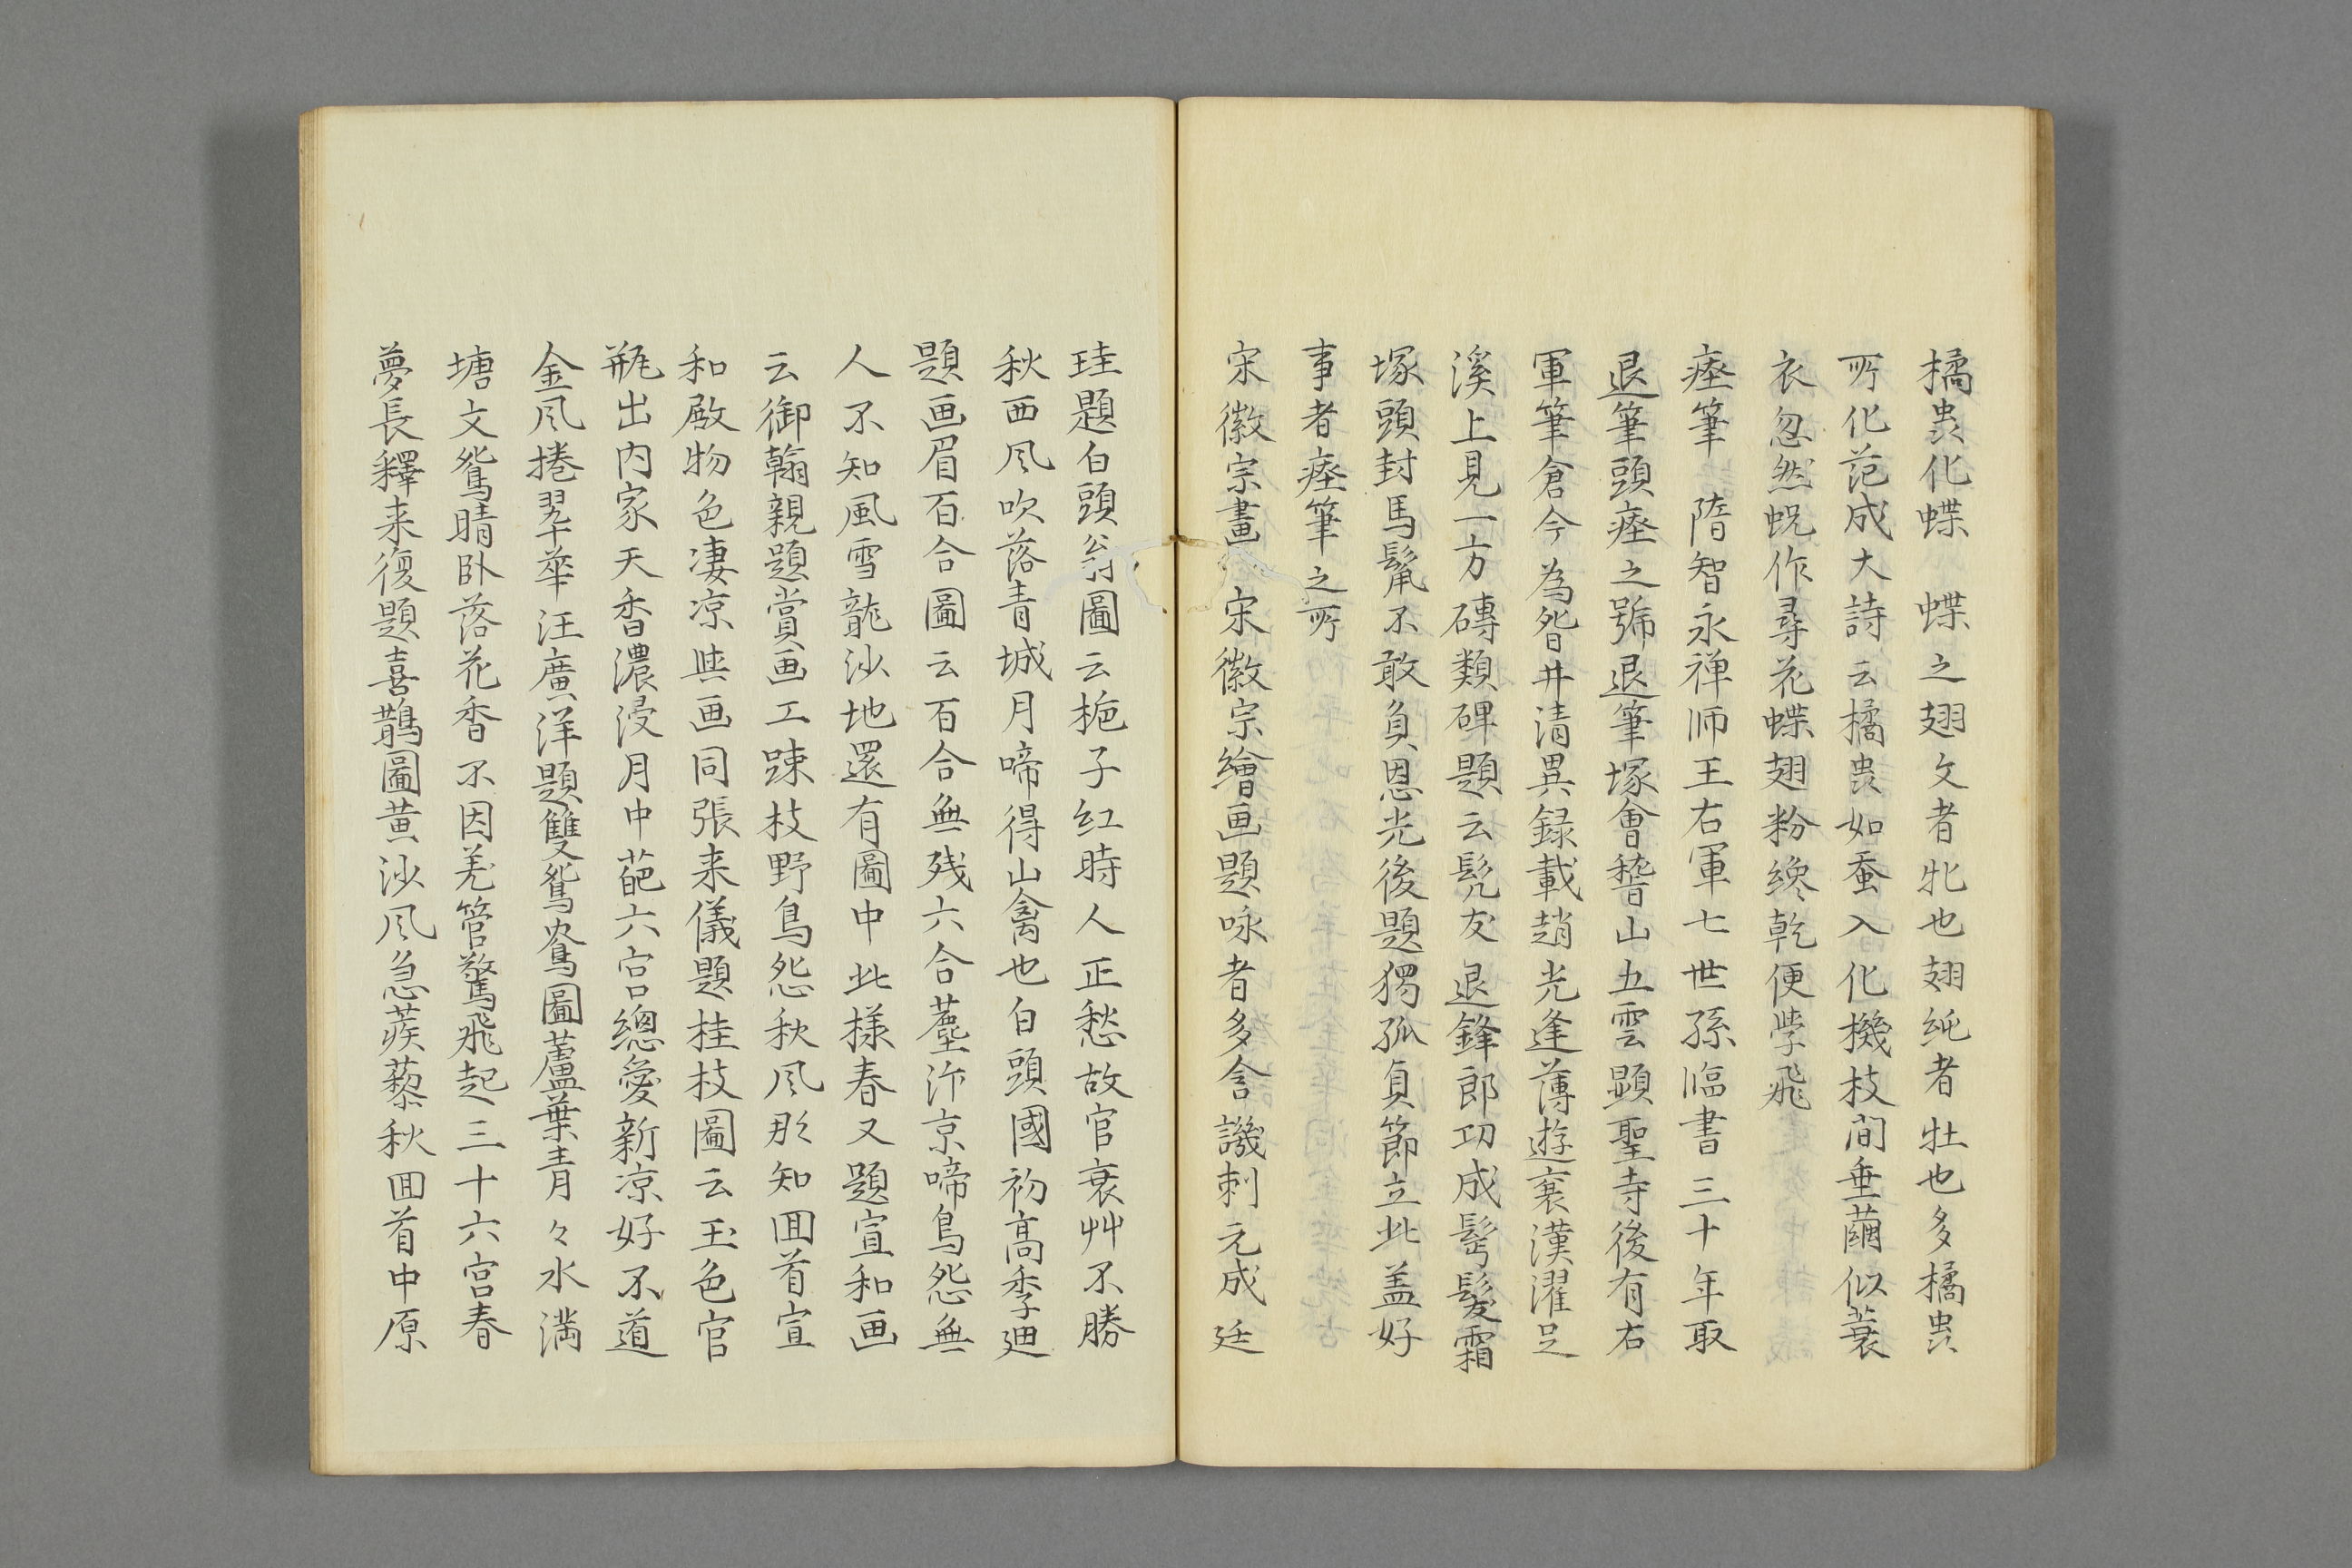 橘虫化蝶　蝶之翅文者牝也翅純者牡也多橘虫
所化范成大詩云橘虫如蚕入化機枝間垂繭似蓑
衣忽然蛻作尋花蝶翅粉纔乾便学飛
瘞筆　隋智永禅師王右軍七世孫臨書三十年取
退筆頭瘞之號退筆塚會稽山五雲顕聖寺後有右
軍筆倉今為眢井清異録載趙光逢薄遊襄漢濯足
溪上見一方磚類碑題云髠友退鋒郎功成髩髮霜
塚頭封馬鬣不敢負恩光後題獨孤貞節立此盖好
事者瘞筆之所
宋徽宗畫　宋徽宗繪画題咏者多含譏刺元成廷
珪題白頭翁圖云梔子紅時人正愁故官衰艸不勝
秋西風吹落青城月啼得山禽也白頭國初高季迪
題画眉百合圖云百合無残六合塵汴京啼鳥怨無
人不知風雪龍沙地還有圖中此様春又題宣和画
云御翰親題賞画工踈枝野鳥怨秋風那知囬首宣
和殿物色凄凉與画同張来儀題桂枝圖云玉色官
瓶出内家天香濃浸月中葩六宮總愛新凉好不道
金風捲翠華汪廣洋題雙鴛鴦圖蘆葉青々水満
塘文鴛晴卧落花香不因羌管驚飛起三十六宮春
夢長釋来復題喜鵲圖黄沙風急蒺藜秋囬首中原